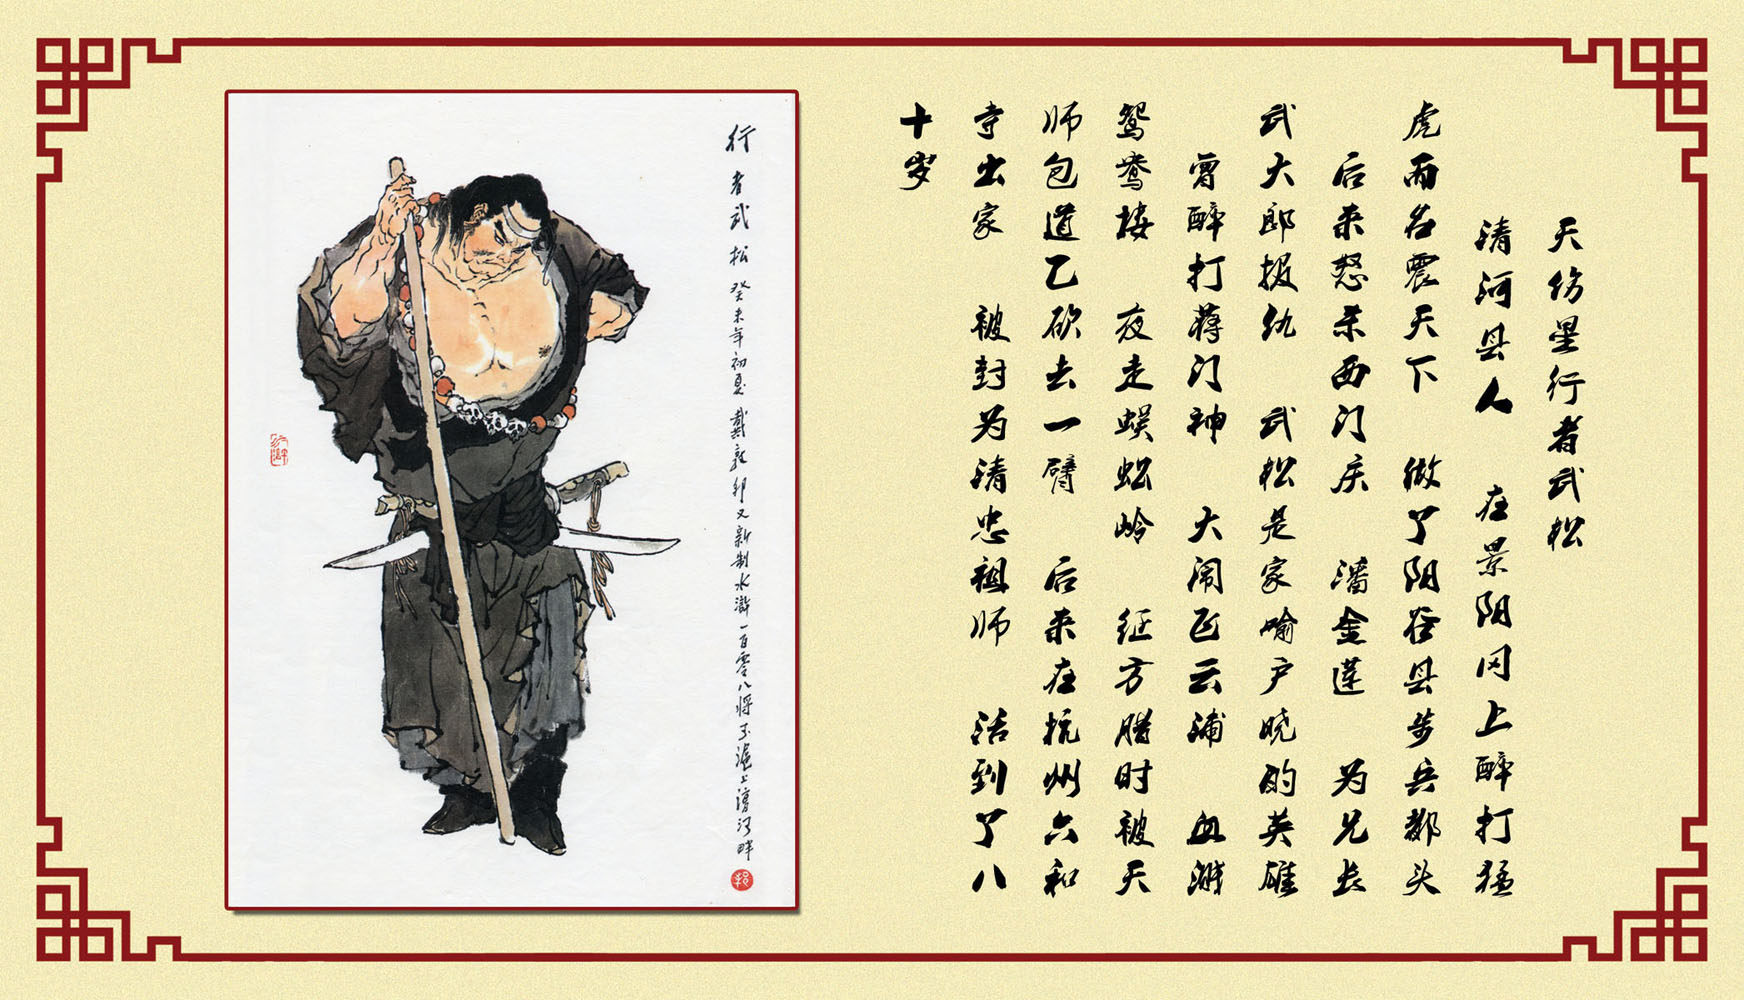 天伤星行者武松
清河县人 在景阳冈上醉打猛
虎而名震天下 做了阳谷县步兵都头
后来怒杀西门庆 潘金莲 为兄长
武大郎报仇 武松是家喻户晓的英雄
曾醉打蒋门神 大闹飞云浦 血溅
鸳鸯楼 夜走蜈蚣岭 征方腊时被天
师包道乙砍去一臂 后来在杭州六和
寺出家 被封为清忠祖师 活到了八
十岁
行者武松 癸未年初夏 戴敦邦又新制水滸一百零八将于滬上漕河畔